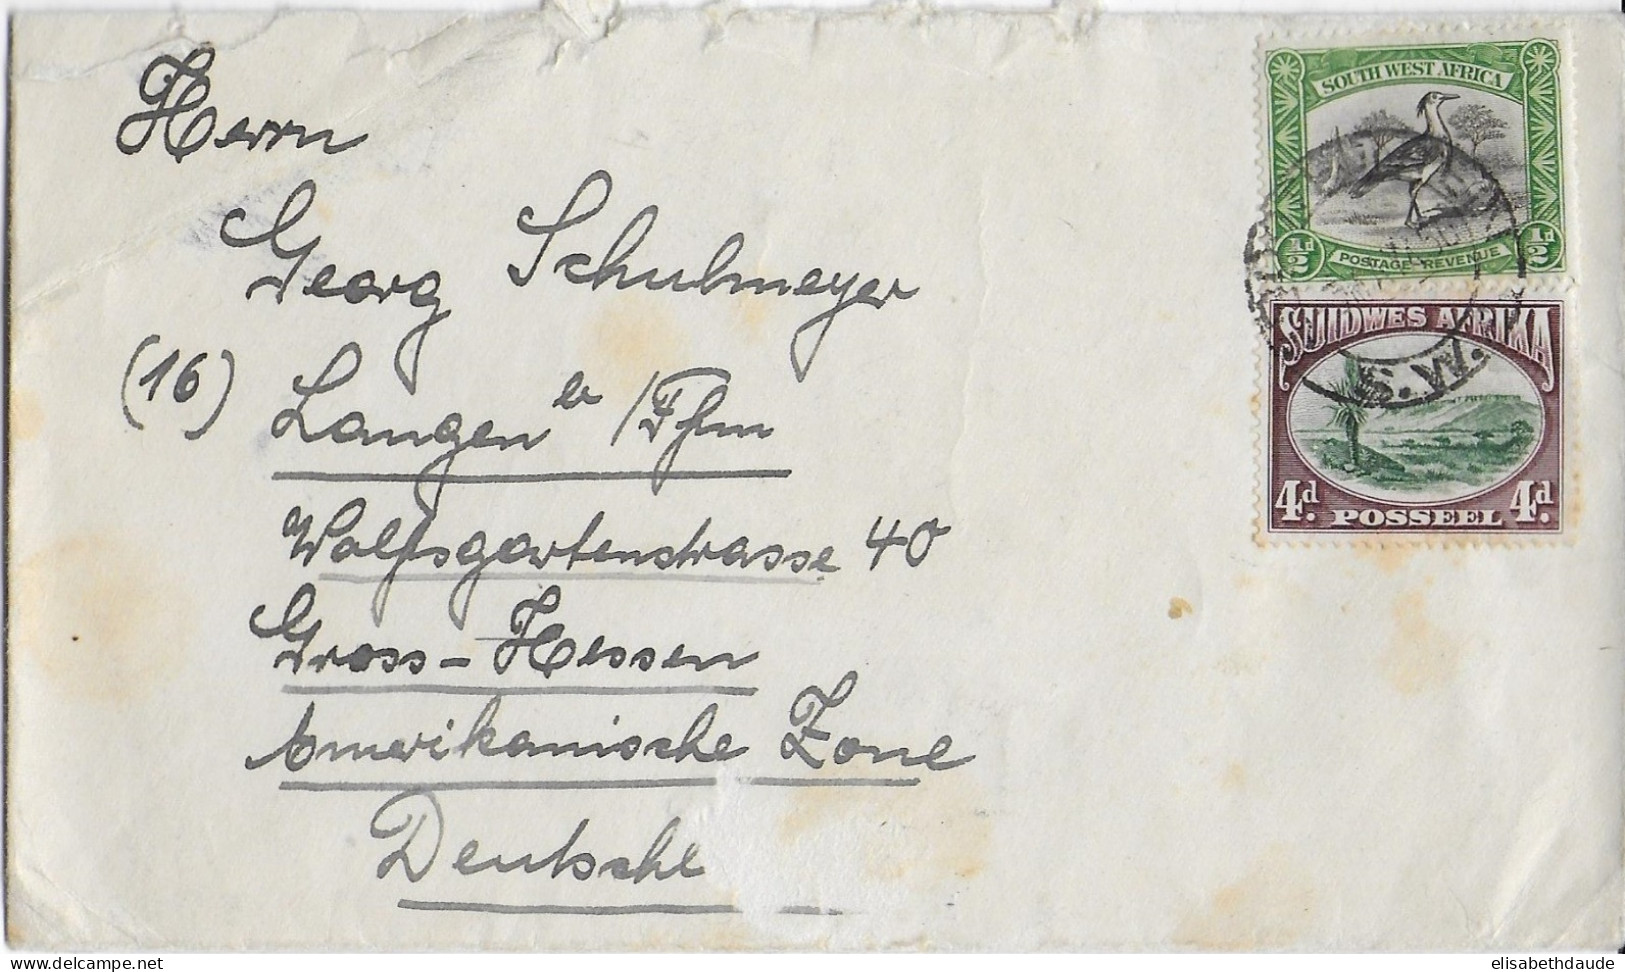 Herrn
Georg Schulmeyer
(16) Langen b/Ffm
Wolfsgartenstrasse 40
Gross-Hessen
Amerikanische Zone
Deutschl
SOUTH WEST AFRICA
½d ½d
POSTAGE REVENUE
SUIDWES AFRIKA
S.W.
4d. 4d.
POSSEEL
delcampe.net
elisabethdaude